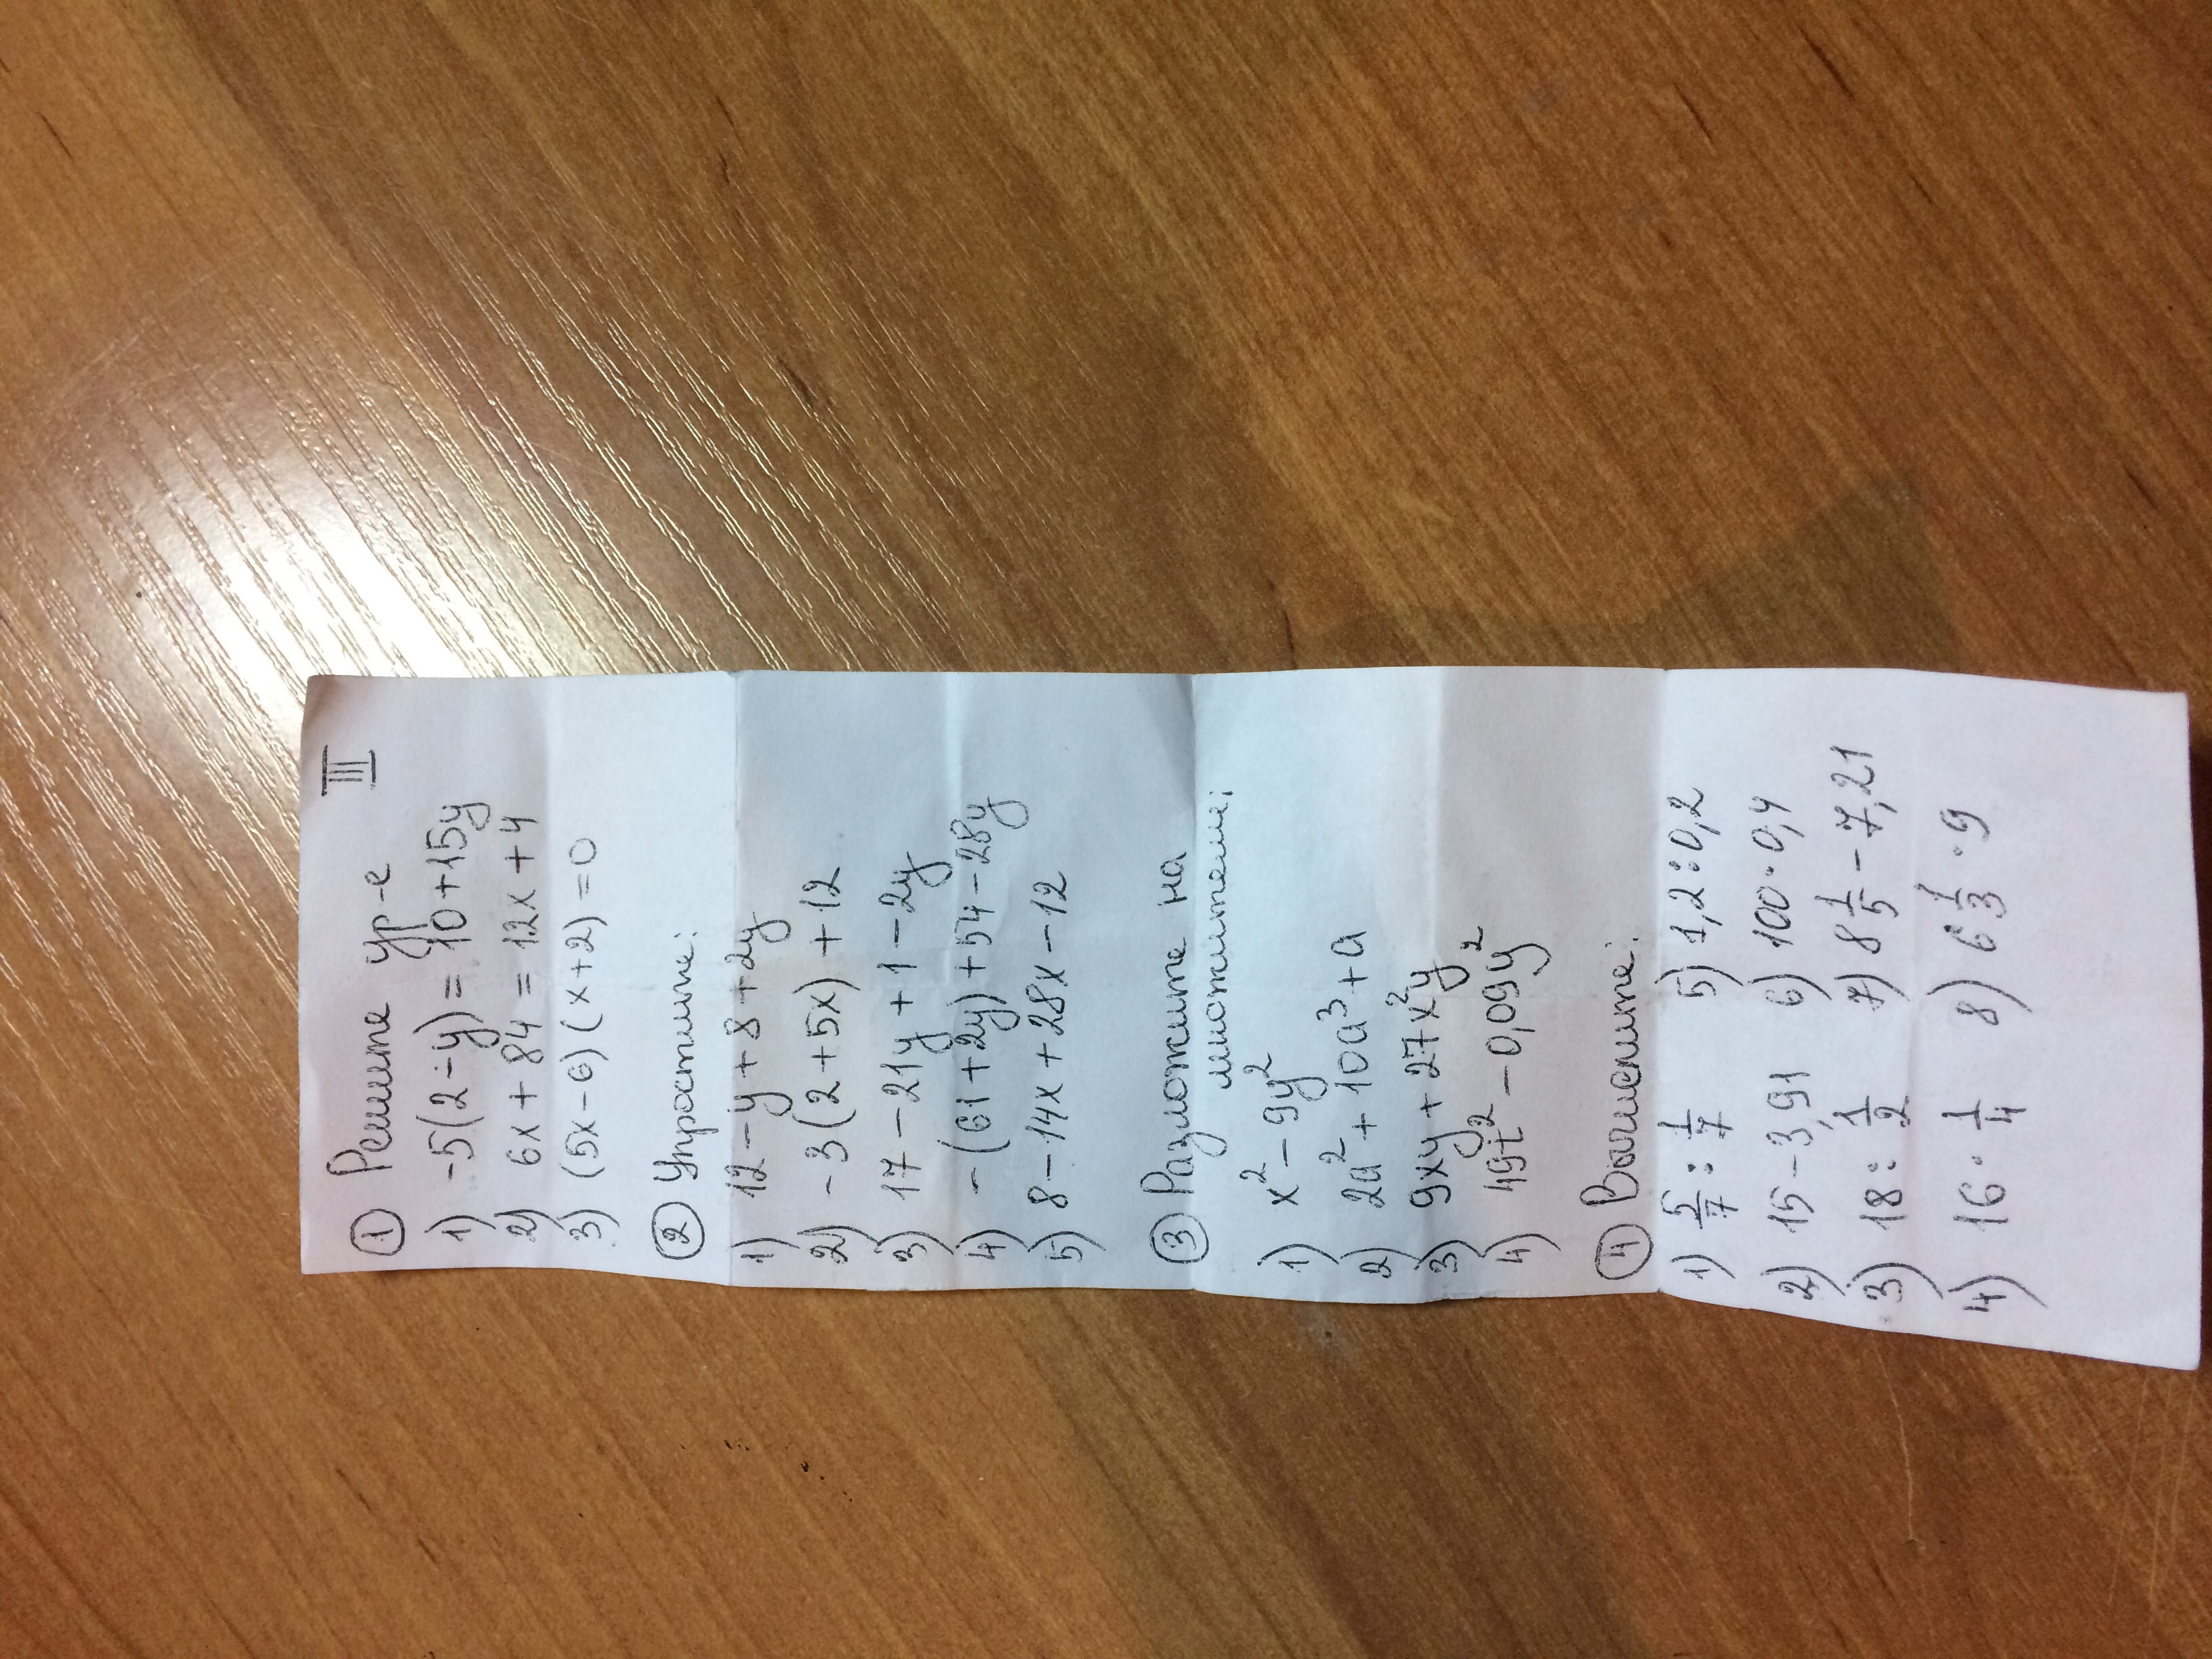 III
① Решите ур-е
1) -5(2-y) = 10+15y
2) 6x + 84 = 12x + 4
3) (5x-6)(x+2)=0
② Упростите:
1) 12-y+8+2y
2) -3(2+5x)+12
3) 17-21y+1-2y
4) -(61+2y)+54-28y
5) 8-14x+28x-12
③ Разложите на
множители:
1) x²-9y²
2) 2a²+10a³+a
3) 9xy+27x²y
4) 49t²-0,09y²
④ Вычислите:
1) 5/7 : 1/7 5) 1,2:0,2
2) 15-3,91 6) 100·0,4
3) 18 : 1/2 7) 8 1/5 - 7,21
4) 16 · 1/4 8) 6 1/3 · 9